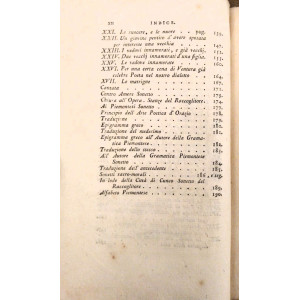 20 INDICE.
XXI. Le suocere, e le nuore pag. 133.
XXII. Un giovine pentito d'avere sposata
per interesse una vecchia
XXIII. I vedovi innamorati, e vecchi
XXIV. Due vecchi innamorati d'una figlia.
XXV. Le vedove innamorate
XXVI. Per una certa cena di Ventura già
celebre Poeta nel nostro dialetto
XXVII. Le matrigne
Canzone
Contra Amore Sonetto
Chiusa all'Opera. Stanze del Raccoglitore. 174.
Ai Piemontesi Sonetto
Principio dell' Arte Poetica d'Orazio 178.
Traduzione
Epigramma greco 180.
Traduzione del medesimo 181.
Epigramma greco all' Autore della Gramatica
Piemontese 182.
Traduzione dello stesso 183.
All' Autore della Gramatica Piemontese
Sonetto 184.
Traduzione dell' antecedente 185.
Sonetti sacro-morali 186, e seg.
In lode della Città di Cuneo Sonetto del
Raccoglitore 189.
Alfabeto Piemontese 190.